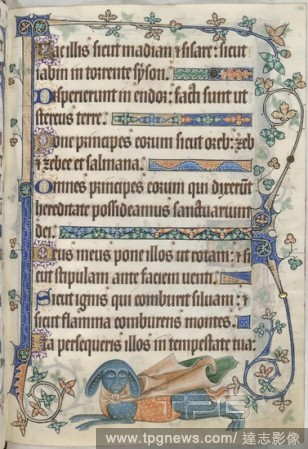 Fac illis sicut madian ⁊ sisare: sicut
iabin in torrente syson.
Disperierunt in endor: facti sunt ut
stercus terre.
Pone principes eorum sicut oreb: ⁊ zeb
⁊ zebee et salmana.
Omnes principes eorum qui dixerūt
hereditate possideamus sanctuarium
dei.
Deus meus pone illos ut rotam: ⁊ si
cut stipulam ante faciem venti.
Sicut ignis qui comburit siluam: ⁊
sicut flamma comburens montes.
Ita persequeris illos in tempestate tua:
TPG
www.tpgnews.com/達志影像